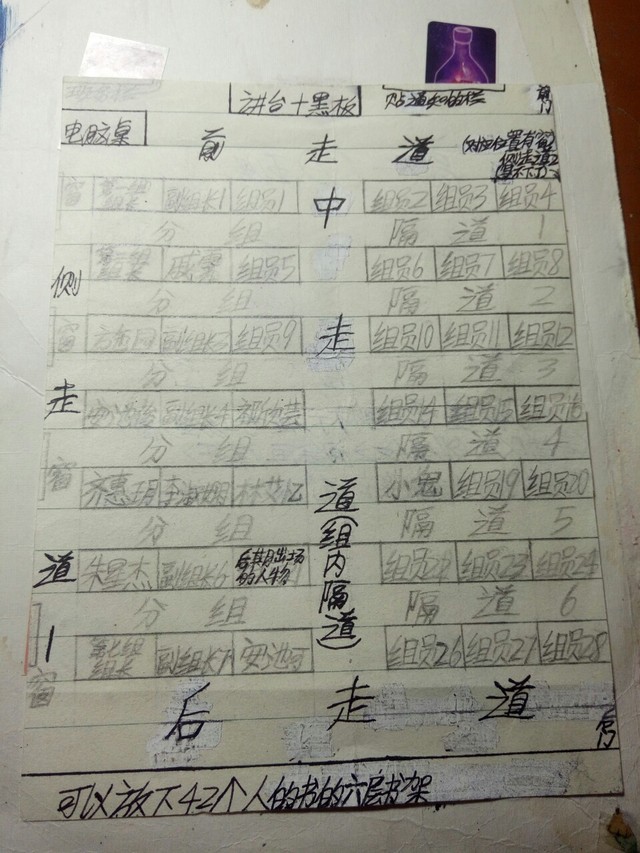 讲台+黑板 贴通知的栏 前门
电脑桌 前走道 (对应位置有窗
侧走道2
(写不下了)
窗 第一组组长 副组长1 组员1 中 组员2 组员3 组员4
分组 隔道1
第二组组长 戚霖 组员5 组员6 组员7 组员8
侧 分组 隔道2
窗 副组长3 组员9 走 组员10 组员11 组员12
分组 隔道3
走 副组长4 组员14 组员15 组员16
分组 隔道4
窗 齐惠玥 道 小鬼 组员19 组员20
分组 (组 隔道5
道 朱星杰 副组长6 后其月出场的人物 内隔 组员22 组员23 组员24
分组 道) 隔道6
1 第七组组长 副组长7 安池可 组员26 组员27 组员28
窗
后走道 后门
可以放下42个人的书的六层书架